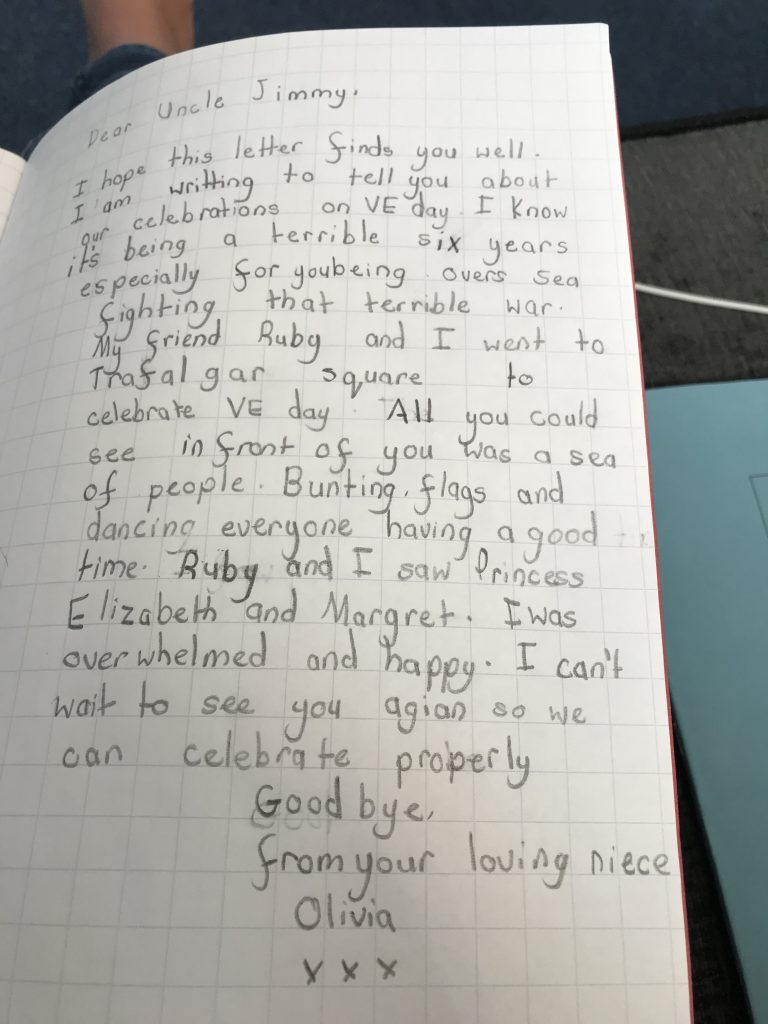 Dear Uncle Jimmy.
I hope this letter finds you well.
I am writting to tell you about
our celebrations on VE day. I know
it's being a terrible six years
especially for youbeing overs sea
fighting that terrible war.
My friend Ruby and I went to
Trafalgar square to
celebrate VE day. All you could
see in front of you was a sea
of people. Bunting, flags and
dancing everyone having a good
time. Ruby and I saw Princess
Elizabeth and Margret. I was
overwhelmed and happy. I can't
wait to see you agian so we
can celebrate properly
Good bye,
from your loving niece
Olivia
x x x